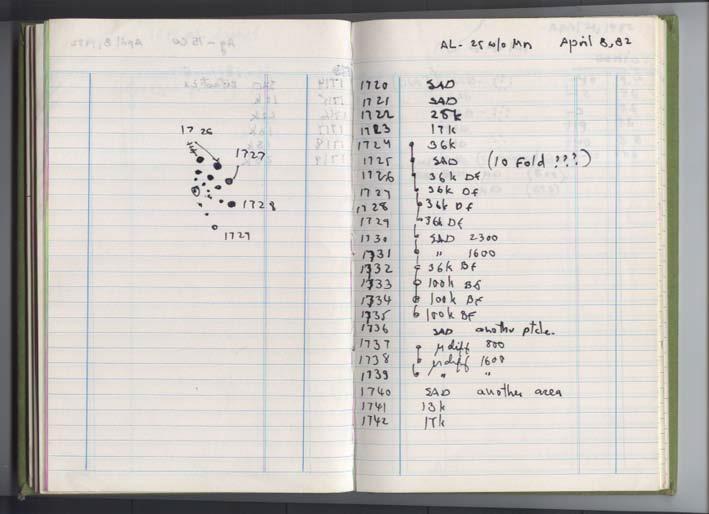 1726
1727
1728
1729
AL- 25 w/o Mn April 8, 82
1720 SAD
1721 SAD
1722 25k
1723 17k
1724 36k
1725 SAD (10 Fold ???)
1726 36k Df
1727 36k Df
1728 36k Df
1729 36k Df
1730 SAD 2300
1731 " 1600
1732 36k Bf
1733 100k Bf
1734 100k BF
1735 100k BF
1736 SAD another ptcle.
1737 μdiff 800
1738 μdiff 1600
1739 " "
1740 SAD another area
1741 13k
1742 17k